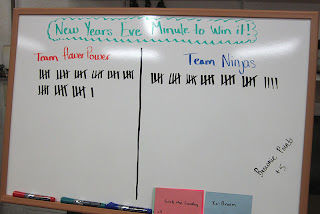 New Years Eve Minute to Win it!
Team Flower Power
Team Ninjas
Brownie Points
+5